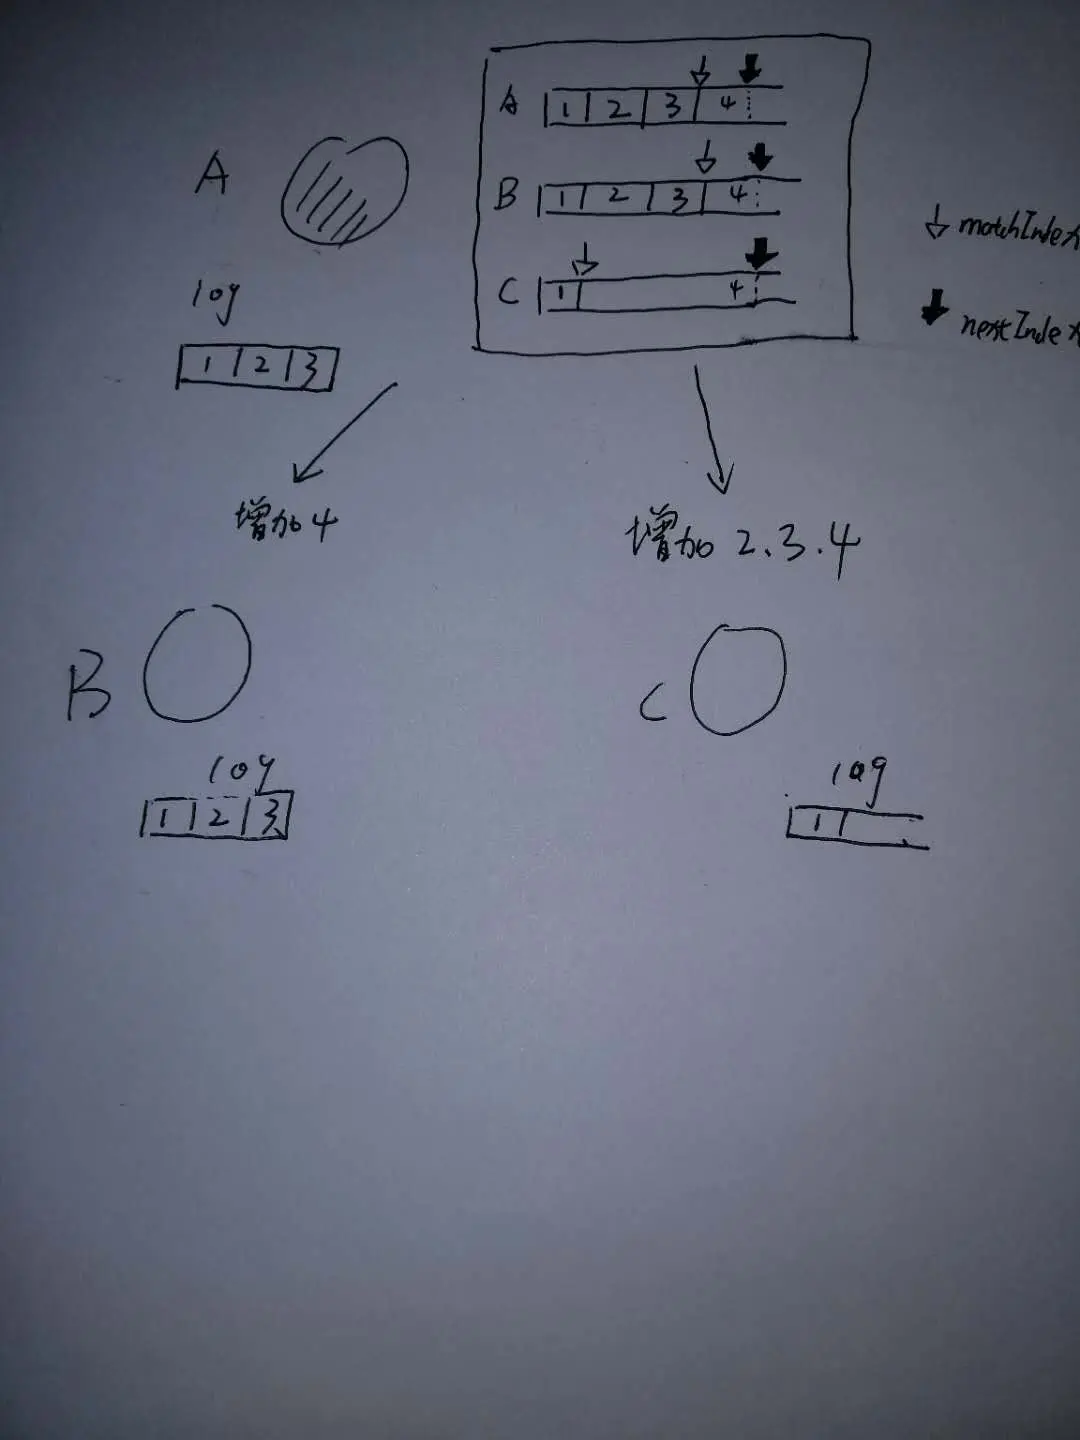 A 1 2 3 4
A
B 1 2 3 4
matchIndex
C 1 4
log
nextIndex
1 2 3
增加4
增加 2.3.4
B
C
log
log
1 2 3
1